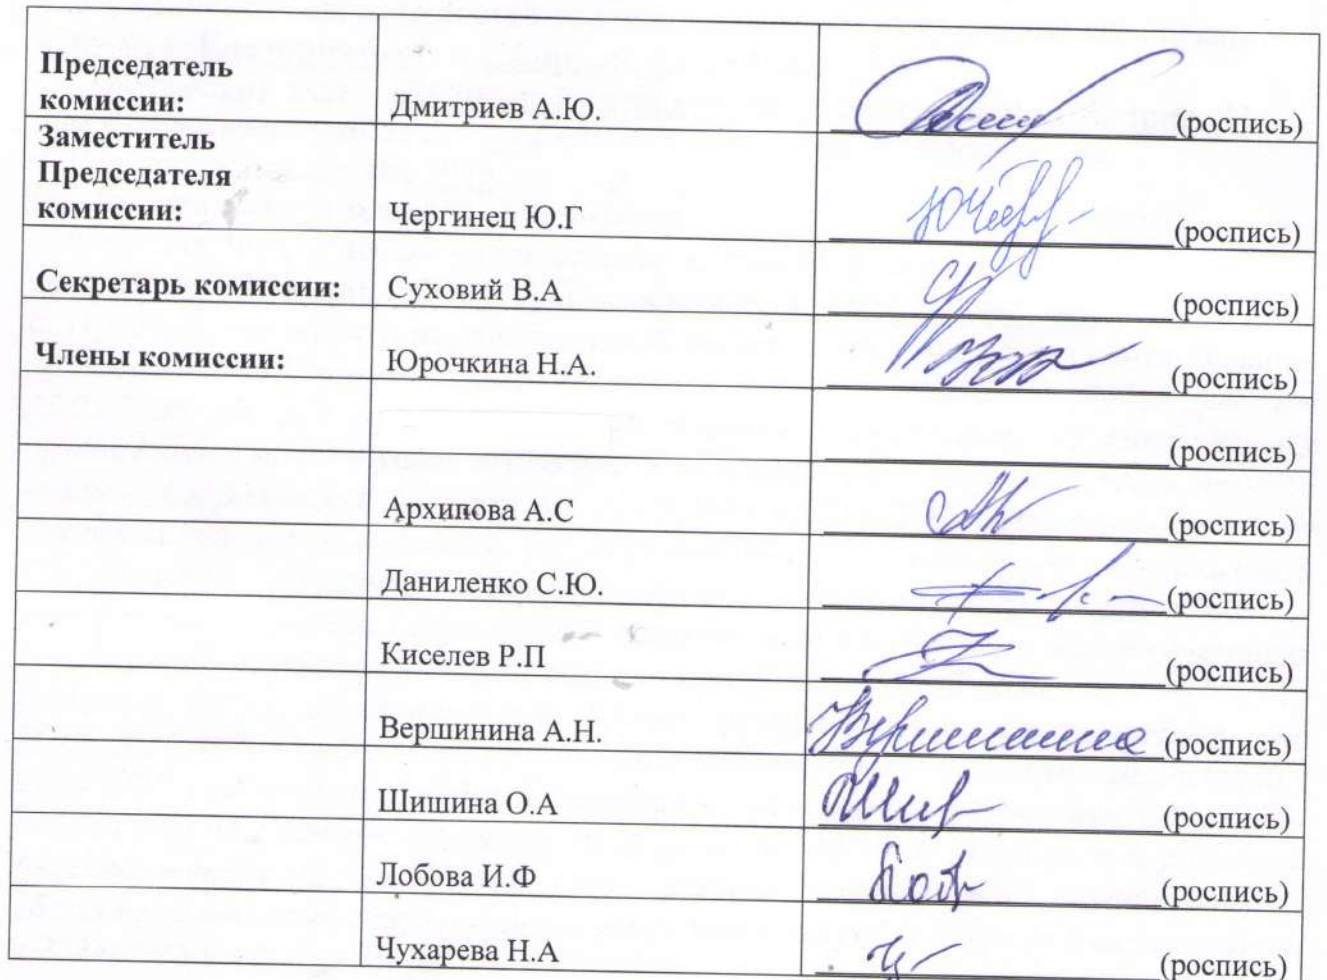 Председатель
комиссии: Дмитриев А.Ю. (роспись)
Заместитель
Председателя
комиссии: Чергинец Ю.Г (роспись)
Секретарь комиссии: Суховий В.А (роспись)
Члены комиссии: Юрочкина Н.А. (роспись)
(роспись)
Архипова А.С (роспись)
Даниленко С.Ю. (роспись)
Киселев Р.П (роспись)
Вершинина А.Н. Вершинина (роспись)
Шишина О.А (роспись)
Лобова И.Ф (роспись)
Чухарева Н.А (роспись)